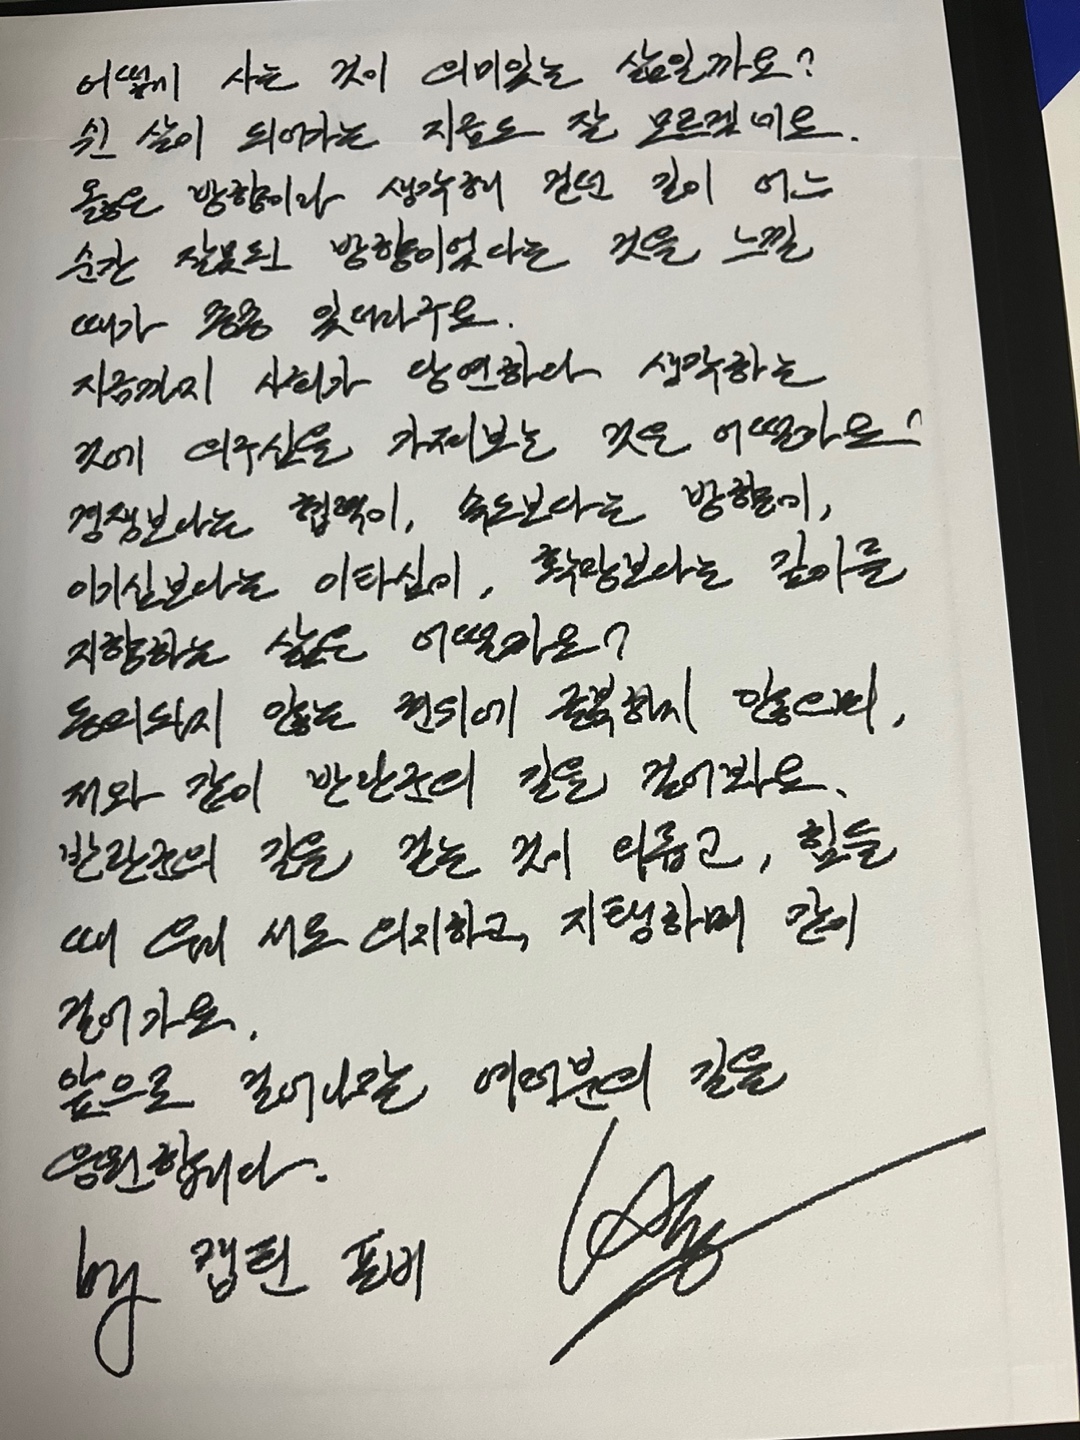 어떻게 사는 것이 의미있는 삶일까요?
쉰 살이 되어가는 지금도 잘 모르겠네요.
올바른 방향이라 생각해 걷던 길이 어느
순간 잘못된 방향이었다는 것을 느낄
때가 종종 있더라구요.
지금까지 사회가 당연하다 생각하는
것에 의구심을 가져보는 것은 어떨까요?
경쟁보다는 협력이, 속도보다는 방향이,
이기심보다는 이타심이, 욕망보다는 깊이를
지향하는 삶은 어떨까요?
동의되지 않는 권위에 굴복하지 않으며,
저와 같이 반란군의 길을 걸어봐요.
반란군의 길을 걷는 것이 외롭고, 힘들
때 우리 서로 의지하고, 지탱하며 같이
걸어가요.
앞으로 걸어나갈 여러분의 길을
응원합니다.
by 캡틴 폴비